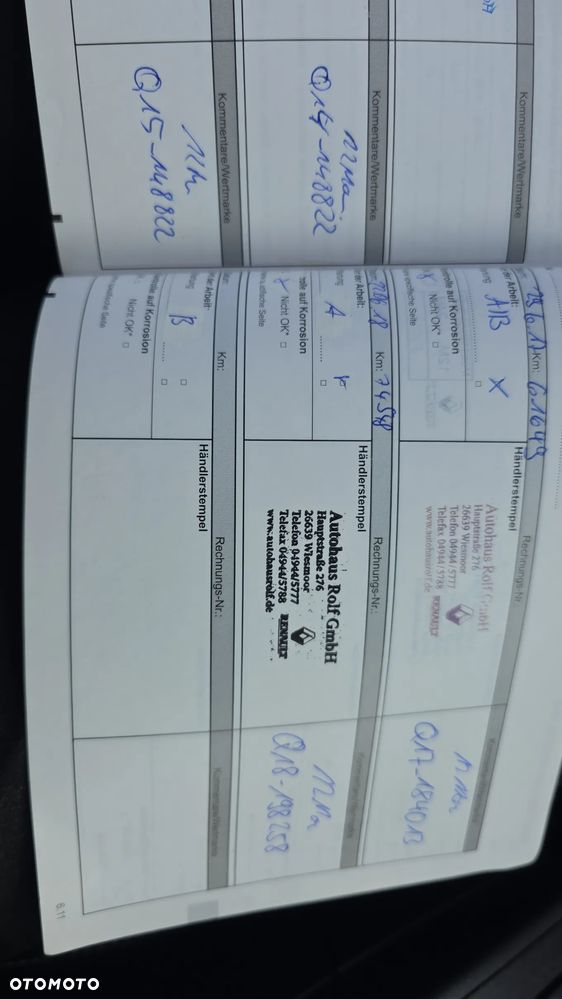 Kommentare/Wertmarke
Kommentare/Wertmarke
Q14-148822
Kommentare/Wertmarke
11h
Q15-148822
Km: 61649
Rechnungs-Nr.
Arbeit:
A/B
X
Korrosion
Nicht OK*
Händlerstempel
Autohaus Rolf GmbH
Hauptstraße 276
26639 Wiesmoor
Telefon 04944/5777
Telefax 04944/5788
www.autohausrolf.de
RENAULT
Q17-184013
Km: 74598
Rechnungs-Nr.:
der Arbeit:
A
auf Korrosion
Nicht OK*
Händlerstempel
Autohaus Rolf GmbH
Hauptstraße 276
26639 Wiesmoor
Telefon 04944/5777
Telefax 04944/5788
www.autohausrolf.de
RENAULT
Kommentare/Wertmarke
Q18-198258
Km:
Rechnungs-Nr.:
der Arbeit:
B
auf Korrosion
Nicht OK*
Händlerstempel
Kommentare/Wertmarke
6.11
OTOMOTO